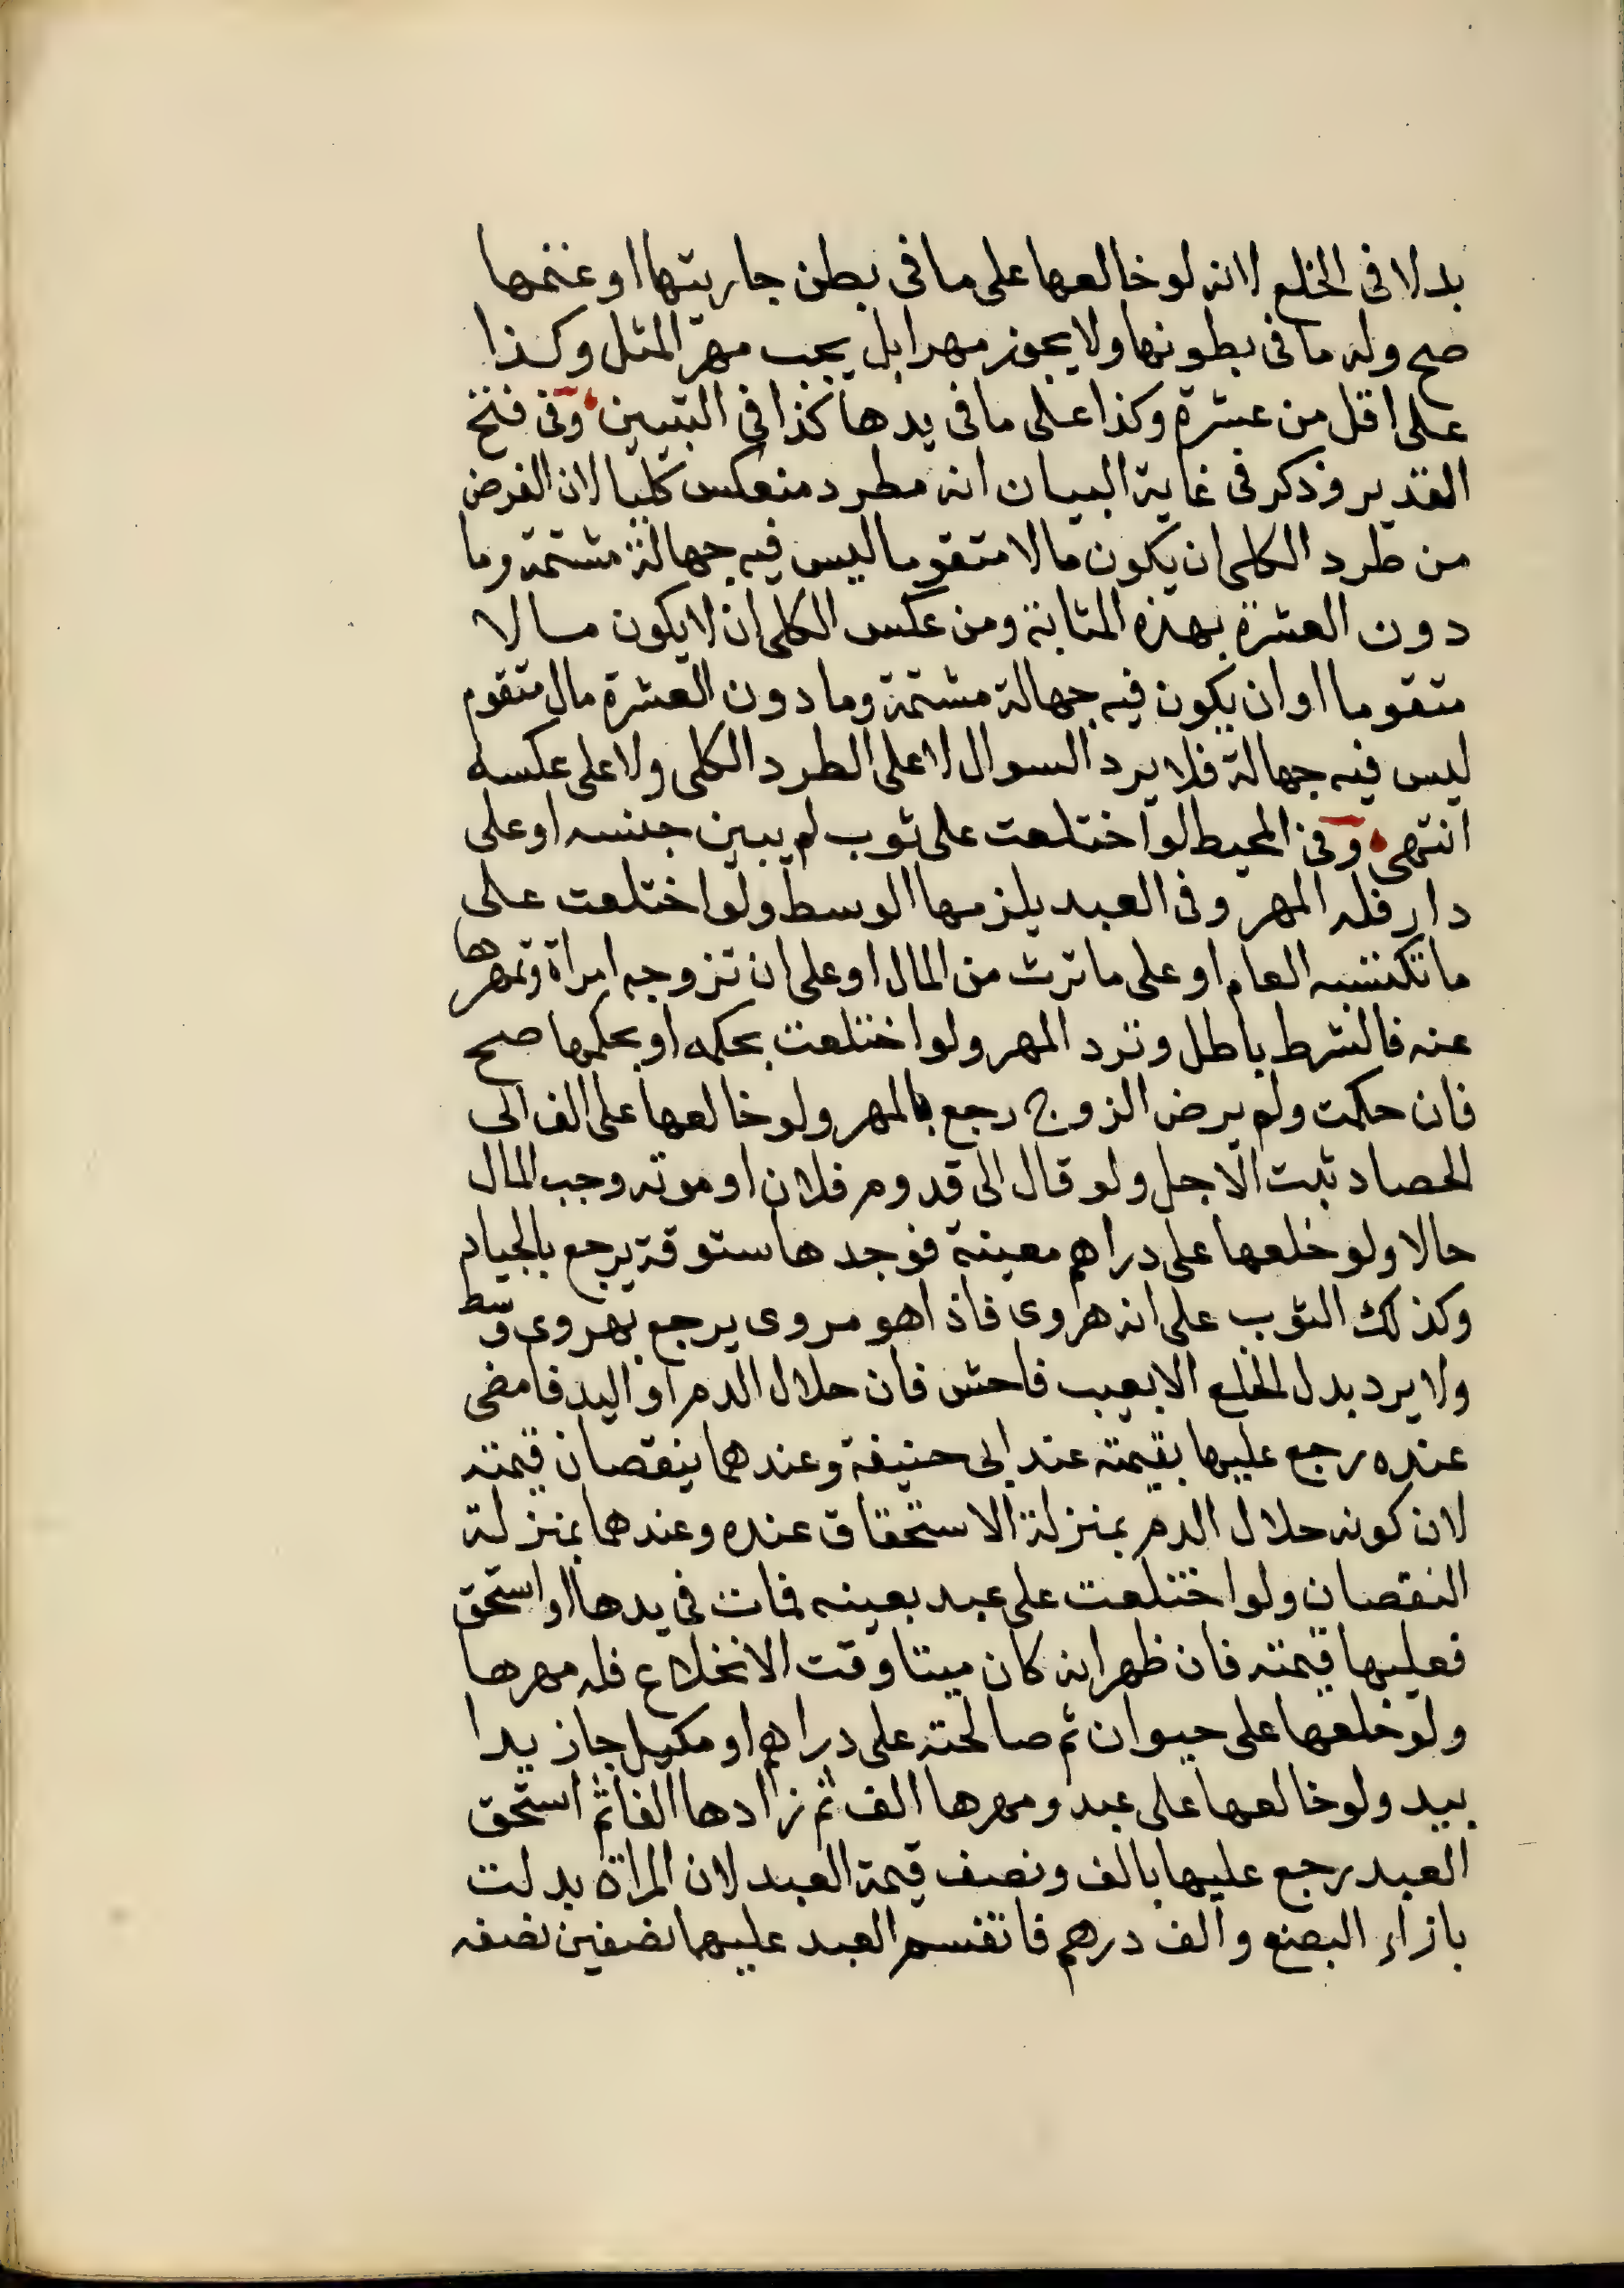 بدلا في الخلع لانه لو خالعها على ما في بطن جاريتها او غنمها
صح وله ما في بطونها ولا يجوز مهرا بل يجب مهر المثل وكذا
على اقل من عشرة وكذا على ما في يدها كذا في التبيين وفي فتح
القدير وذكر في غاية البيان انه مطرد منعكس كليا لان الغرض
من طرد الكلى ان يكون مالا متقوما ليس فيه جهالة مشتمة وما
دون العشرة بهذه المثابة ومن عكس الكلى ان لا يكون مالا
متقوما او ان يكون فيه جهالة مشتمة وما دون العشرة مال متقوم
ليس فيه جهالة فلا يرد السوال لا على الطرد الكلى ولا على عكسه
انتهى وفي المحيط لو اختلعت على ثوب لم يبين جنسه او على
دار فله المهر وفى العبد يلزمها الوسط ولو اختلعت على
ما تكتسبه العام او على ما ترث من المال او على ان تزوجه امراة وتمهرها
عنه فالشرط باطل وترد المهر ولو اختلعت بحكمه او بحكمها صح
فان حكمت ولم يرض الزوج رجع بالمهر ولو خالعها على الف الى
الحصاد ثبت الاجل ولو قال الى قدوم فلان او موته وجب المال
حالا ولو خلعها على دراهم معينة فوجدها ستوقة يرجع بالجياد
وكذلك الثوب على انه هروى فاذا هو مروى يرجع بهروى وسط
ولا يرد بدل الخلع الا بعيب فاحش فان حلال الدم او اليد فامضى
عنده رجع عليها بقيمته عند ابى حنيفة وعندهما بنقصان قيمته
لان كونه حلال الدم بمنزلة الاستحقاق عنده وعندهما بمنزلة
النقصان ولو اختلعت على عبد بعينه فمات في يدها او استحق
فعليها قيمته فان ظهر انه كان ميتا وقت الانخلاع فله مهرها
ولو خلعها على حيوان ثم صالحته على دراهم او مكيل جاز يدا
بيد ولو خالعها على عبد ومهرها الف ثم زادها الفا ثم استحق
العبد رجع عليها بالف ونصف قيمة العبد لان المراة بدلت
بازاء البضع والف درهم فانقسم العبد عليهما نصفين نصفه